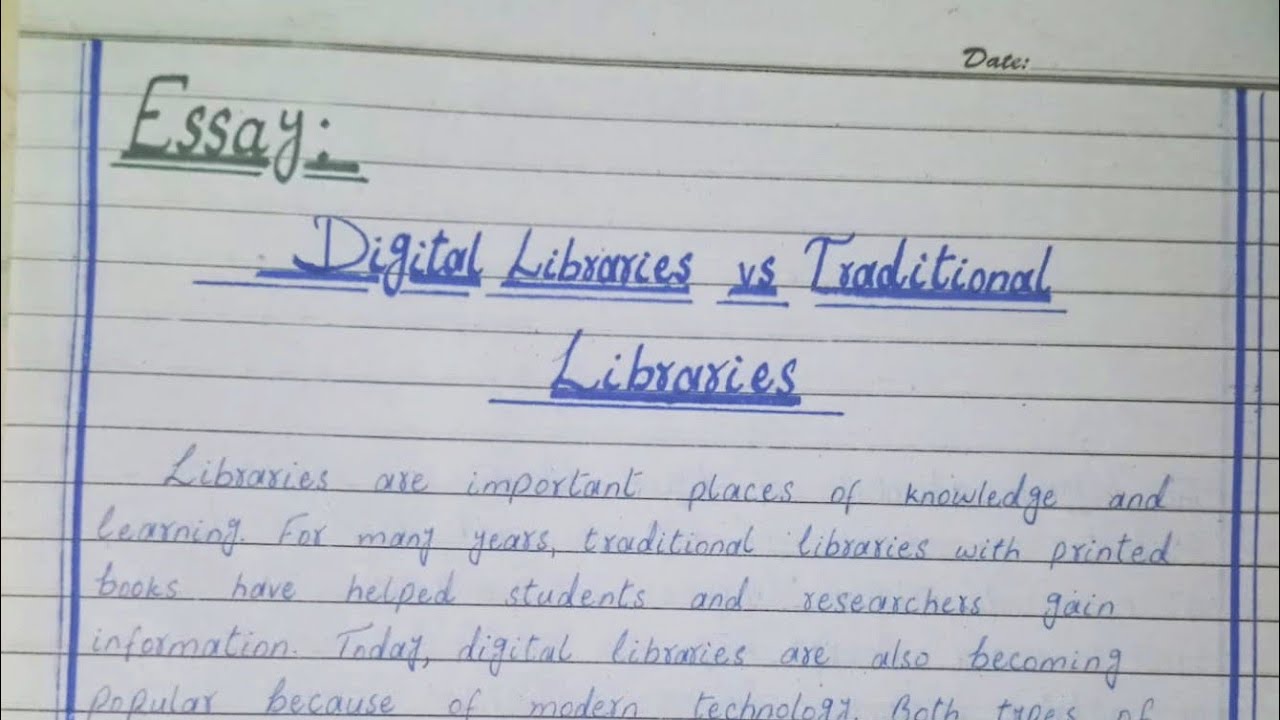 Date:
Essay:
Digital Libraries vs Traditional
Libraries
Libraries are important places of knowledge and
learning. For many years, traditional libraries with printed
books have helped students and researchers gain
information. Today, digital libraries are also becoming
popular because of modern technology. Both types of